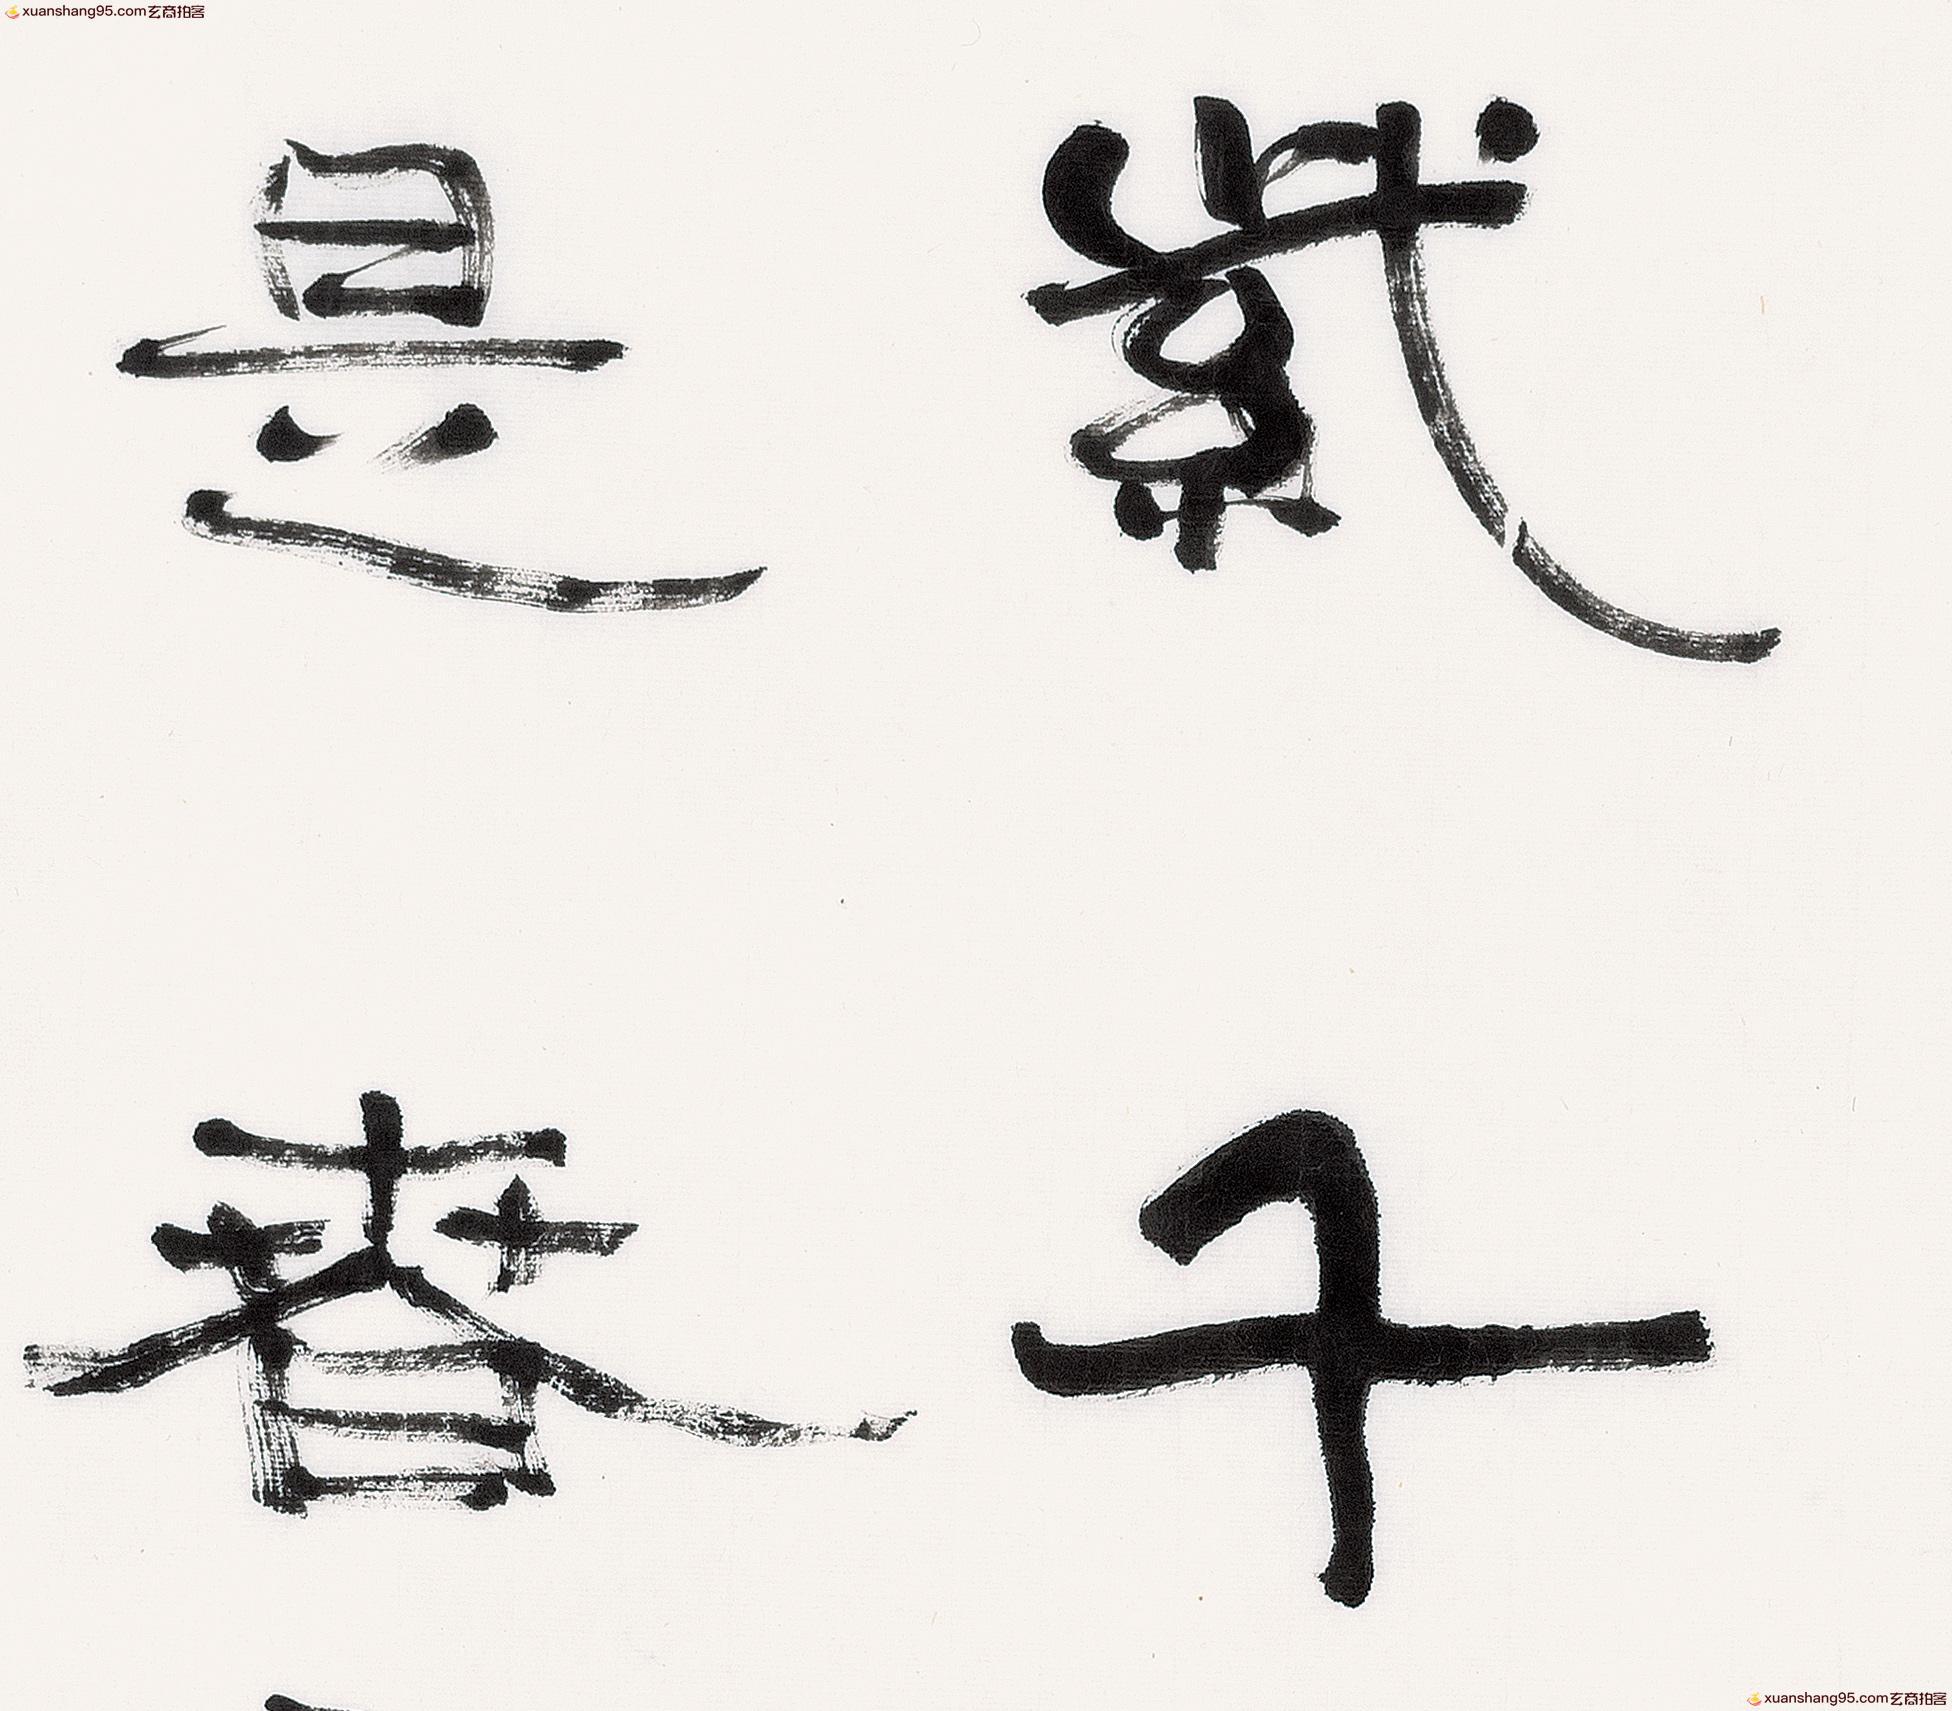 xuanshang95.com玄商拍客
紫千
是春
xuanshang95.com玄商拍客